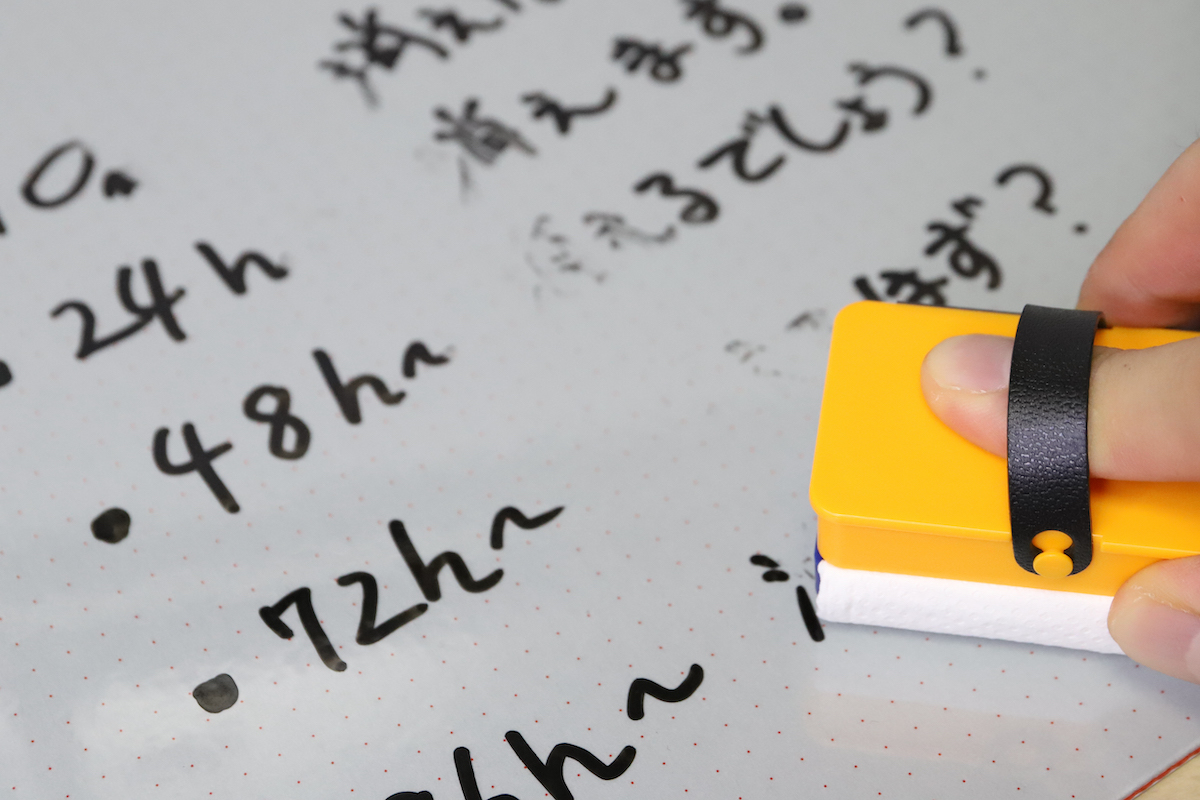 0。 消え
・24h 消えます。
・48h〜 消えるでしょう?
・72h〜 はず?
6h〜